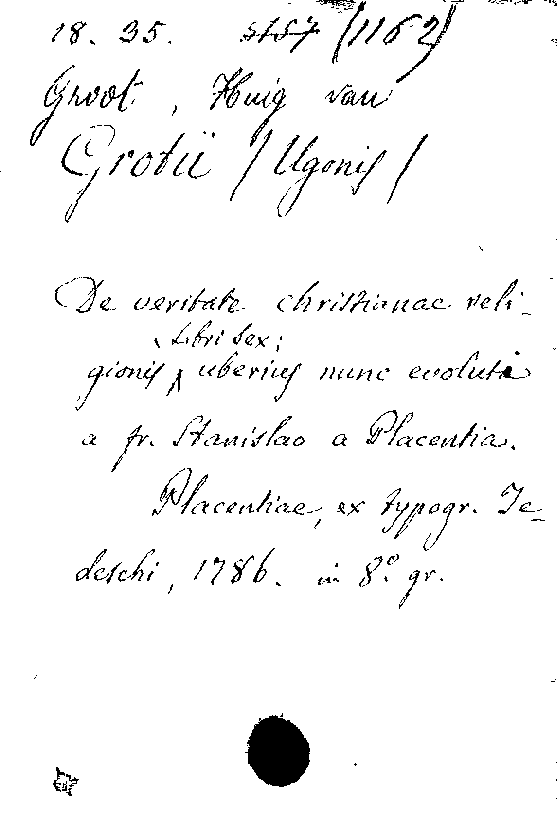 18. 35. 3157 (1162)
Groot, Huig van
Grotii (Ugonis)
De veritate christianae reli-
libri sex;
gionis uberius nunc evoluti
a fr. Stanislao a Placentia.
Placentiae, ex typogr. Te-
deschi, 1786. in 8º. gr.